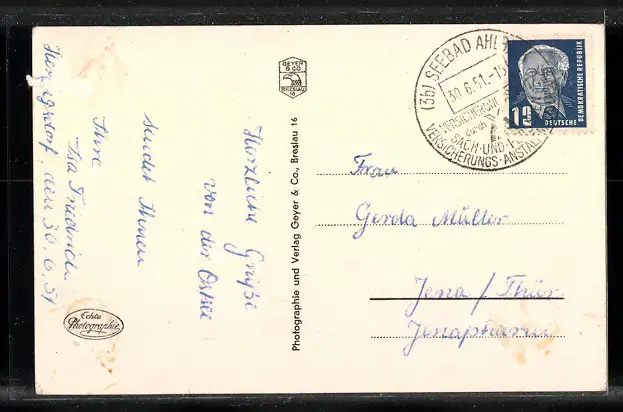 Heringsdorf, den 30.6.51
Herzliche Grüße
von der Ostsee
sendet Ihnen
Ihre
Friedrich
Echte
Photographie
GEYER
& CO
BRESLAU
16
Photographie und Verlag Geyer & Co., Breslau 16
(3b) SEEBAD AHL
30.6.51.-15
VERSICHERUNG
durch
SACH-UND
VERSICHERUNGS-ANSTALT
12
DEUTSCHE
DEMOKRATISCHE REPUBLIK
Frau
Gerda Müller
Jena / Thür.
Jenapharm